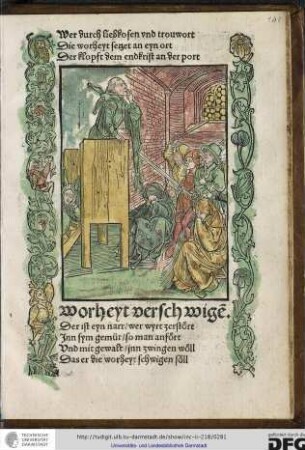 Wer durch liebkosen vnd trouwort
Die worheyt setzet an eyn ort
Der klopft dem endkrist an der port
worheyt verschwigē.
Der ist eyn narr / wer wyrt zerstört
Jnn sym gemüt / so man anfört
Vnd mit gewalt / jnn zwingen wöll
Das er die worheyt schwigen söll
TECHNISCHE
UNIVERSITÄT
DARMSTADT
http://tudigit.ulb.tu-darmstadt.de/show/inc-iv-218/0281
Universitäts- und Landesbibliothek Darmstadt
gefördert durch die
DFG